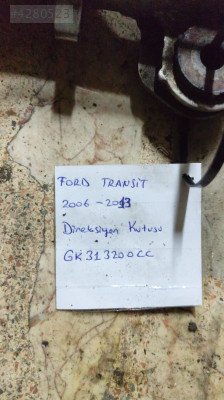 FORD TRANSIT
2006-2013
Direksiyon Kutusu
GK313200CC